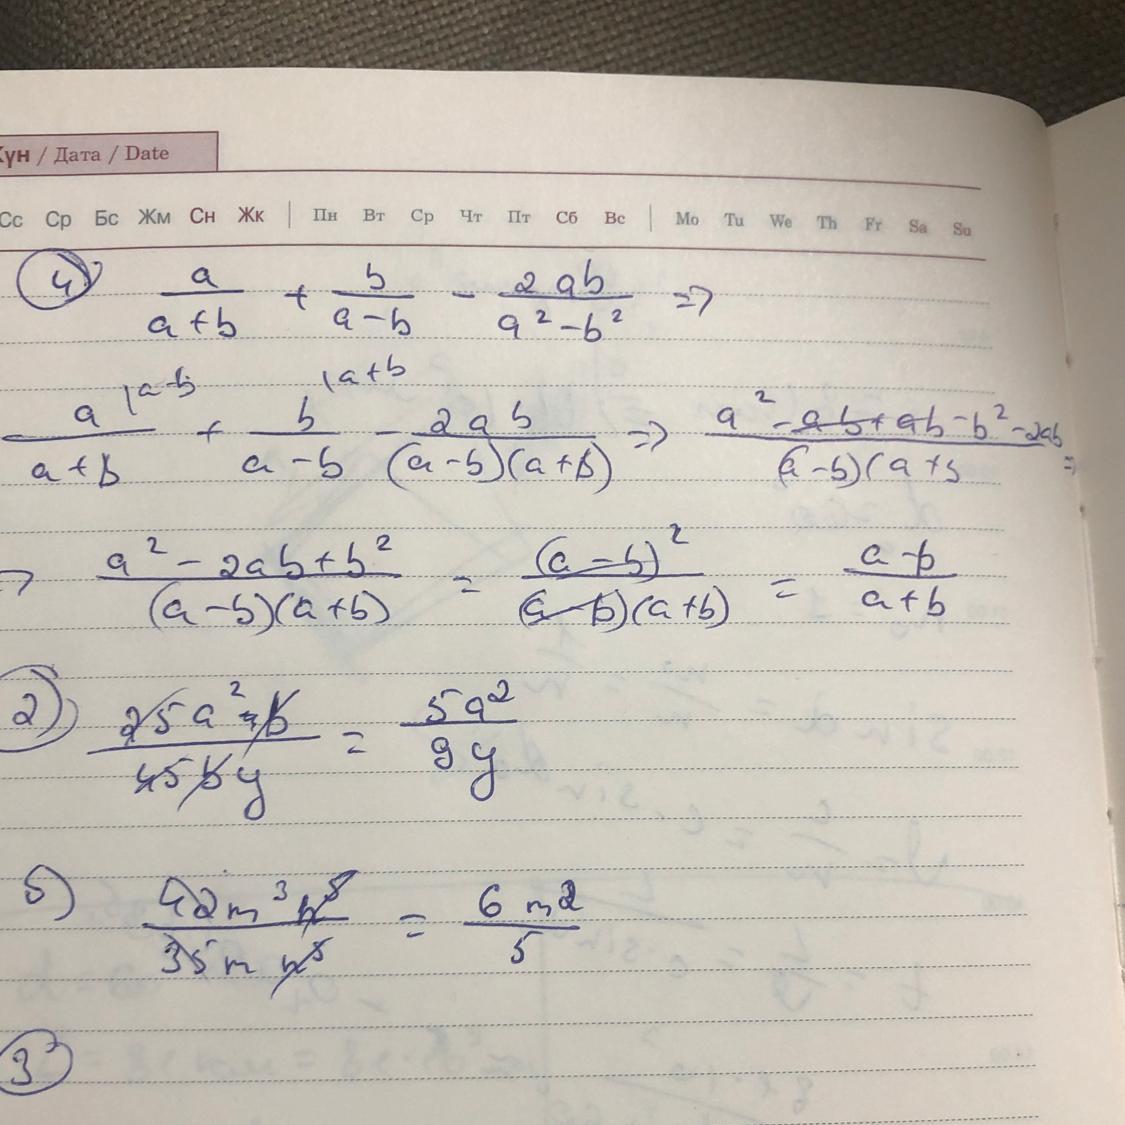 Күн / Дата / Date
Сс Ср Бс Жм Сн Жк | Пн Вт Ср Чт Пт Сб Вс | Mo Tu We Th Fr Sa Su
4) a/(a+b) + b/(a-b) - 2ab/(a²-b²) =>
a|a-b/(a+b) + b|a+b/(a-b) - 2ab/((a-b)(a+b)) => (a²-ab+ab-b²-2ab)/((a-b)(a+b =>
=> (a²-2ab+b²)/((a-b)(a+b)) = (a-b)²/((a-b)(a+b)) = (a-b)/(a+b)
2) 25a²b/45by = 5a²/9y
б) 42m³n⁵/35mn⁵ = 6m²/5
3)